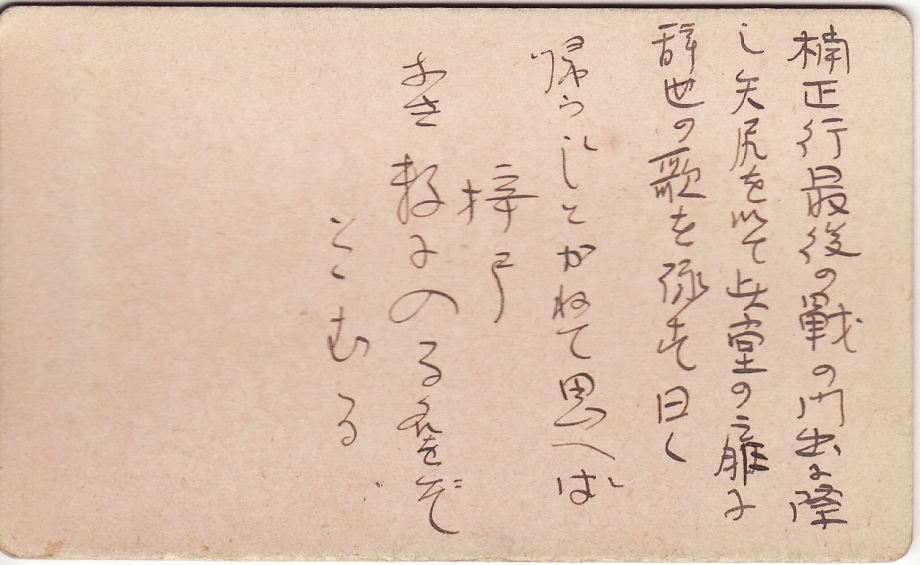 楠正行最後の戰の門出に際
し矢尻を以て此堂の扉に
辞世の歌を す曰く
帰らじとかねて思へば
梓弓
なき数にのる名をぞ
とゞむる